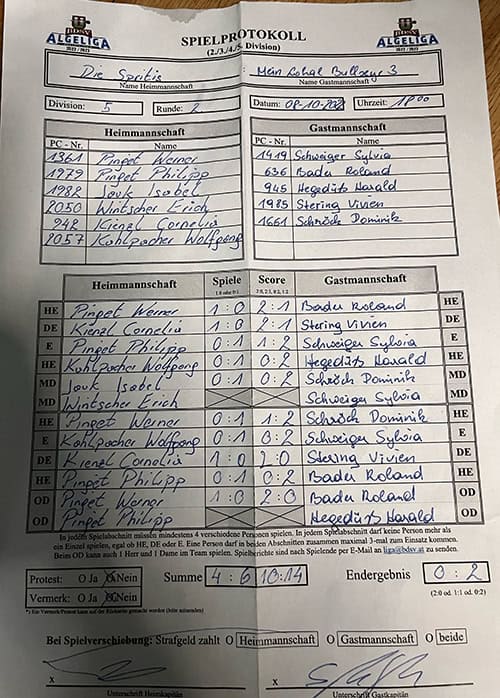 BDSV
ALGELIGA
2022 / 2023
SPIELPROTOKOLL
(2./3./4./5. Division)
BDSV
ALGELIGA
2022 / 2023
Die Spritis : Mein Lokal Bullseye 3
Name Heimmannschaft Name Gastmannschaft
Division: 5 Runde: 2 Datum: 08-10-2022 Uhrzeit: 18 00
Heimmannschaft Gastmannschaft
PC - Nr. Name PC - Nr. Name
1361 Pinget Werner 1419 Schweiger Sylvia
1979 Pinget Philipp 636 Bader Roland
1982 Jauk Isabel 945 Hegedüs Harald
2050 Wintscher Erich 1985 Stering Vivien
942 Kienzl Cornelia 1661 Schröck Dominik
2057 Kohlpacher Wolfgang
Heimmannschaft Spiele Score Gastmannschaft
1:0 oder 0:1 2:0, 2:1, 0:2, 1:2
HE Pinget Werner 1:0 2:1 Bader Roland HE
DE Kienzl Cornelia 1:0 2:1 Stering Vivien DE
E Pinget Philipp 0:1 1:2 Schweiger Sylvia E
HE Kohlpacher Wolfgang 0:1 0:2 Hegedüs Harald HE
MD Jauk Isabel 0:1 0:2 Schröck Dominik MD
MD Wintscher Erich Schweiger Sylvia MD
HE Pinget Werner 0:1 1:2 Schröck Dominik HE
E Kohlpacher Wolfgang 0:1 0:2 Schweiger Sylvia E
DE Kienzl Cornelia 1:0 2:0 Stering Vivien DE
HE Pinget Philipp 0:1 0:2 Bader Roland HE
OD Pinget Werner 1:0 2:0 Bader Roland OD
OD Pinget Philipp Hegedüs Harald OD
In jedem Spielabschnitt müssen mindestens 4 verschiedene Personen spielen. In jedem Spielabschnitt darf keine Person mehr als
ein Einzel spielen, egal ob HE, DE oder E. Eine Person darf in beiden Abschnitten zusammen maximal 3-mal zum Einsatz kommen.
Beim OD kann auch 1 Herr und 1 Dame im Team spielen. Spielberichte sind nach Spielende per E-Mail an liga@bdsv.at zu senden.
Protest: O Ja O Nein Summe 4 : 6 10:14 Endergebnis 0 : 2
Vermerk: O Ja O Nein (2:0 od. 1:1 od. 0:2)
*) Ein Vermerk/Protest kann auf der Rückseite gemacht werden (bitte ankreuzen)
Bei Spielverschiebung: Strafgeld zahlt O Heimmannschaft O Gastmannschaft O beide
x x
Unterschrift Heimkapitän Unterschrift Gastkapitän